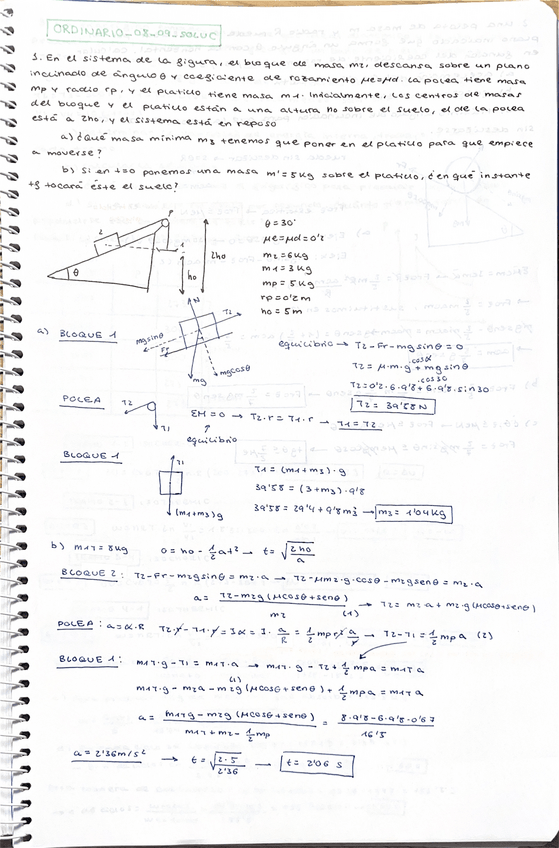 ORDINARIO_08_09_SOLUC
1. En el sistema de la figura, el bloque de masa m2, descansa sobre un plano
inclinado de ángulo θ y coeficiente de rozamiento μe=μd. La polea tiene masa
mp y radio rp, y el platillo tiene masa m1. Inicialmente, los centros de masas
del bloque y el platillo están a una altura ho sobre el suelo, el de la polea
está a 2ho, y el sistema está en reposo
a) ¿Qué masa mínima m3 tenemos que poner en el platillo para que empiece
a moverse?
b) Si en t=0 ponemos una masa m'=5Kg sobre el platillo, ¿en qué instante
tf tocará éste el suelo?
P
2
1
2ho
ho
θ
θ=30°
μe=μd=0'2
m2=6Kg
m1=3Kg
mp=5Kg
rp=0'2m
ho=5m
a) BLOQUE 1
N
T2
mgsinθ
Fr
mg
mgcosθ
equilibrio → T2-Fr-mgsinθ=0
T2=μ·m·g·cosα+mgsinθ
T2=0'2·6·9'8·cos30+6·9'8·sin30
T2=39'58N
POLEA
T2
T1
ΣM=0 → T2·r=T1·r → T1=T2
equilibrio
BLOQUE 1
T1
(m1+m3)g
T1=(m1+m3)·g
39'58=(3+m3)·9'8
39'58=29'4+9'8m3 → m3=1'04Kg
b) m1T=8Kg 0=ho-1/2at² → t=√(2ho/a)
BLOQUE 2: T2-Fr-m2gsinθ=m2·a → T2-μm2·g·cosθ-m2gsenθ=m2·a
a=(T2-m2g(μcosθ+senθ))/m2 (1) → T2=m2·a+m2·g(μcosθ+senθ)
POLEA: a=α·R T2·r-T1·r=Iα=I·a/R=1/2mpr²·a/r → T2-T1=1/2mpa (2)
BLOQUE 1: m1T·g-T1=m1T·a → m1T·g-T2+1/2mpa=m1Ta
(1)
m1T·g-m2a-m2g(μcosθ+senθ)+1/2mpa=m1Ta
a=(m1Tg-m2g(μcosθ+senθ))/(m1T+m2-1/2mp)=(8·9'8-6·9'8·0'67)/16'5
a=2'36m/s² → t=√(2·5/2'36) → t=2'06 s